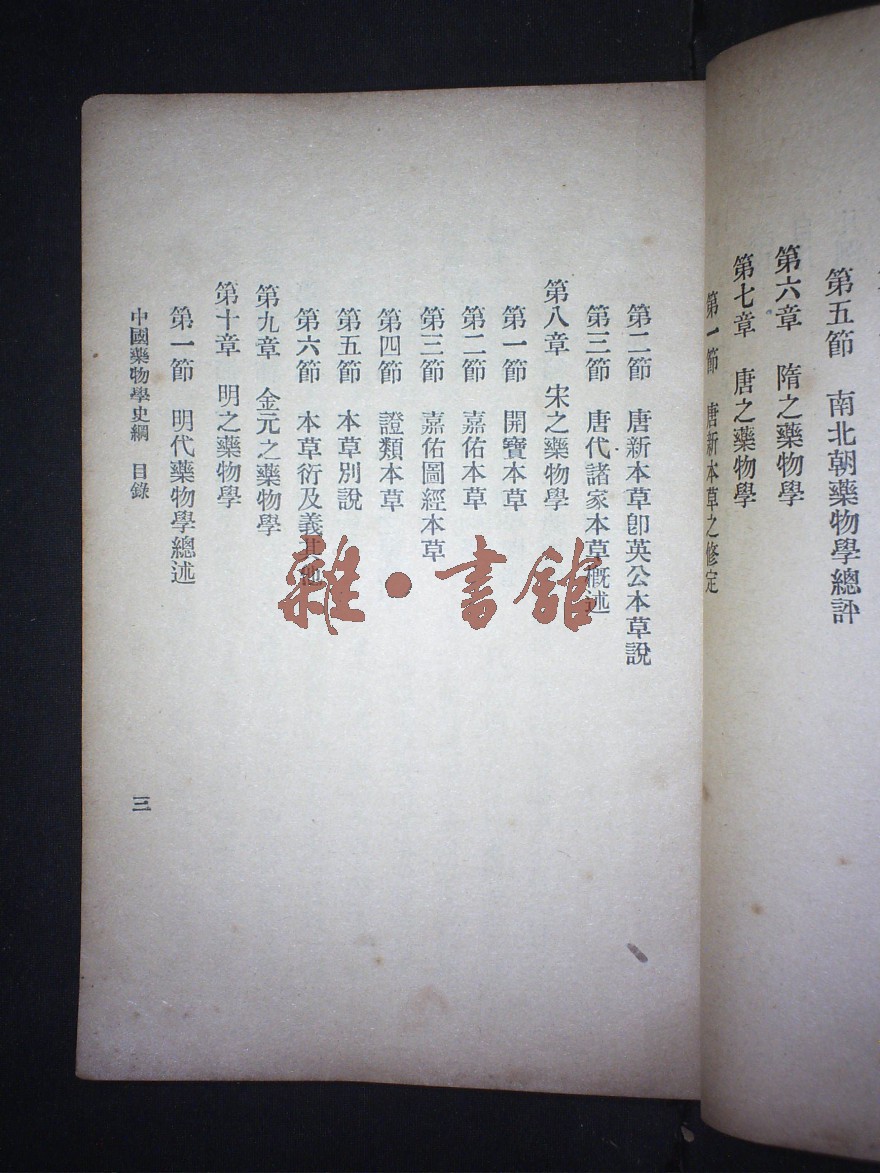 第五節 南北朝藥物學總評
第六章 隋之藥物學
第七章 唐之藥物學
第一節 唐新本草之修定
第二節 唐新本草卽英公本草說
第三節 唐代諸家本草概述
第八章 宋之藥物學
第一節 開寶本草
第二節 嘉佑本草
第三節 嘉佑圖經本草
第四節 證類本草
第五節 本草別說
第六節 本草衍及義其他
第九章 金元之藥物學
第十章 明之藥物學
第一節 明代藥物學總述
中國藥物學史綱 目錄
三
雜·書館